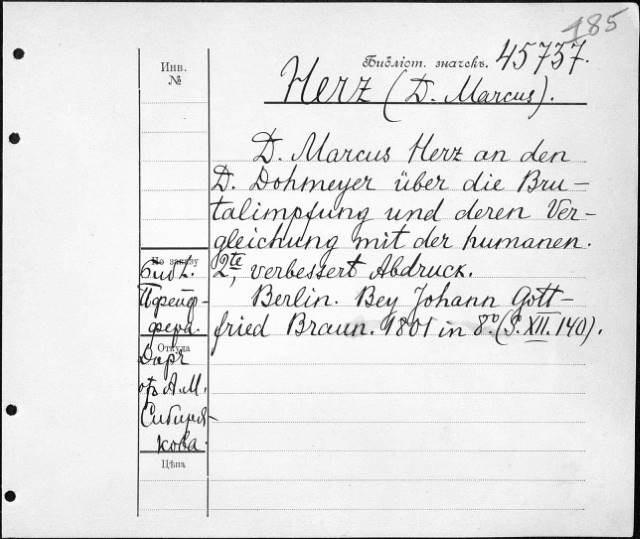 185
Инв.
№
Библіот. значокъ. 45757.
Herz (D. Marcus).
D. Marcus Herz an den
D. Dohmeyer über die Bru-
talimpfung und deren Ver-
gleichung mit der humanen.
2te, verbessert Abdruck.
Berlin. Bey Johann Gott-
fried Braun. 1801 in 8º. (S. XII. 140).
По заказу
Библ.
Пфейф-
фера.
Откуда
Даръ
отъ А.М.
Сибиря-
кова.
Цѣна